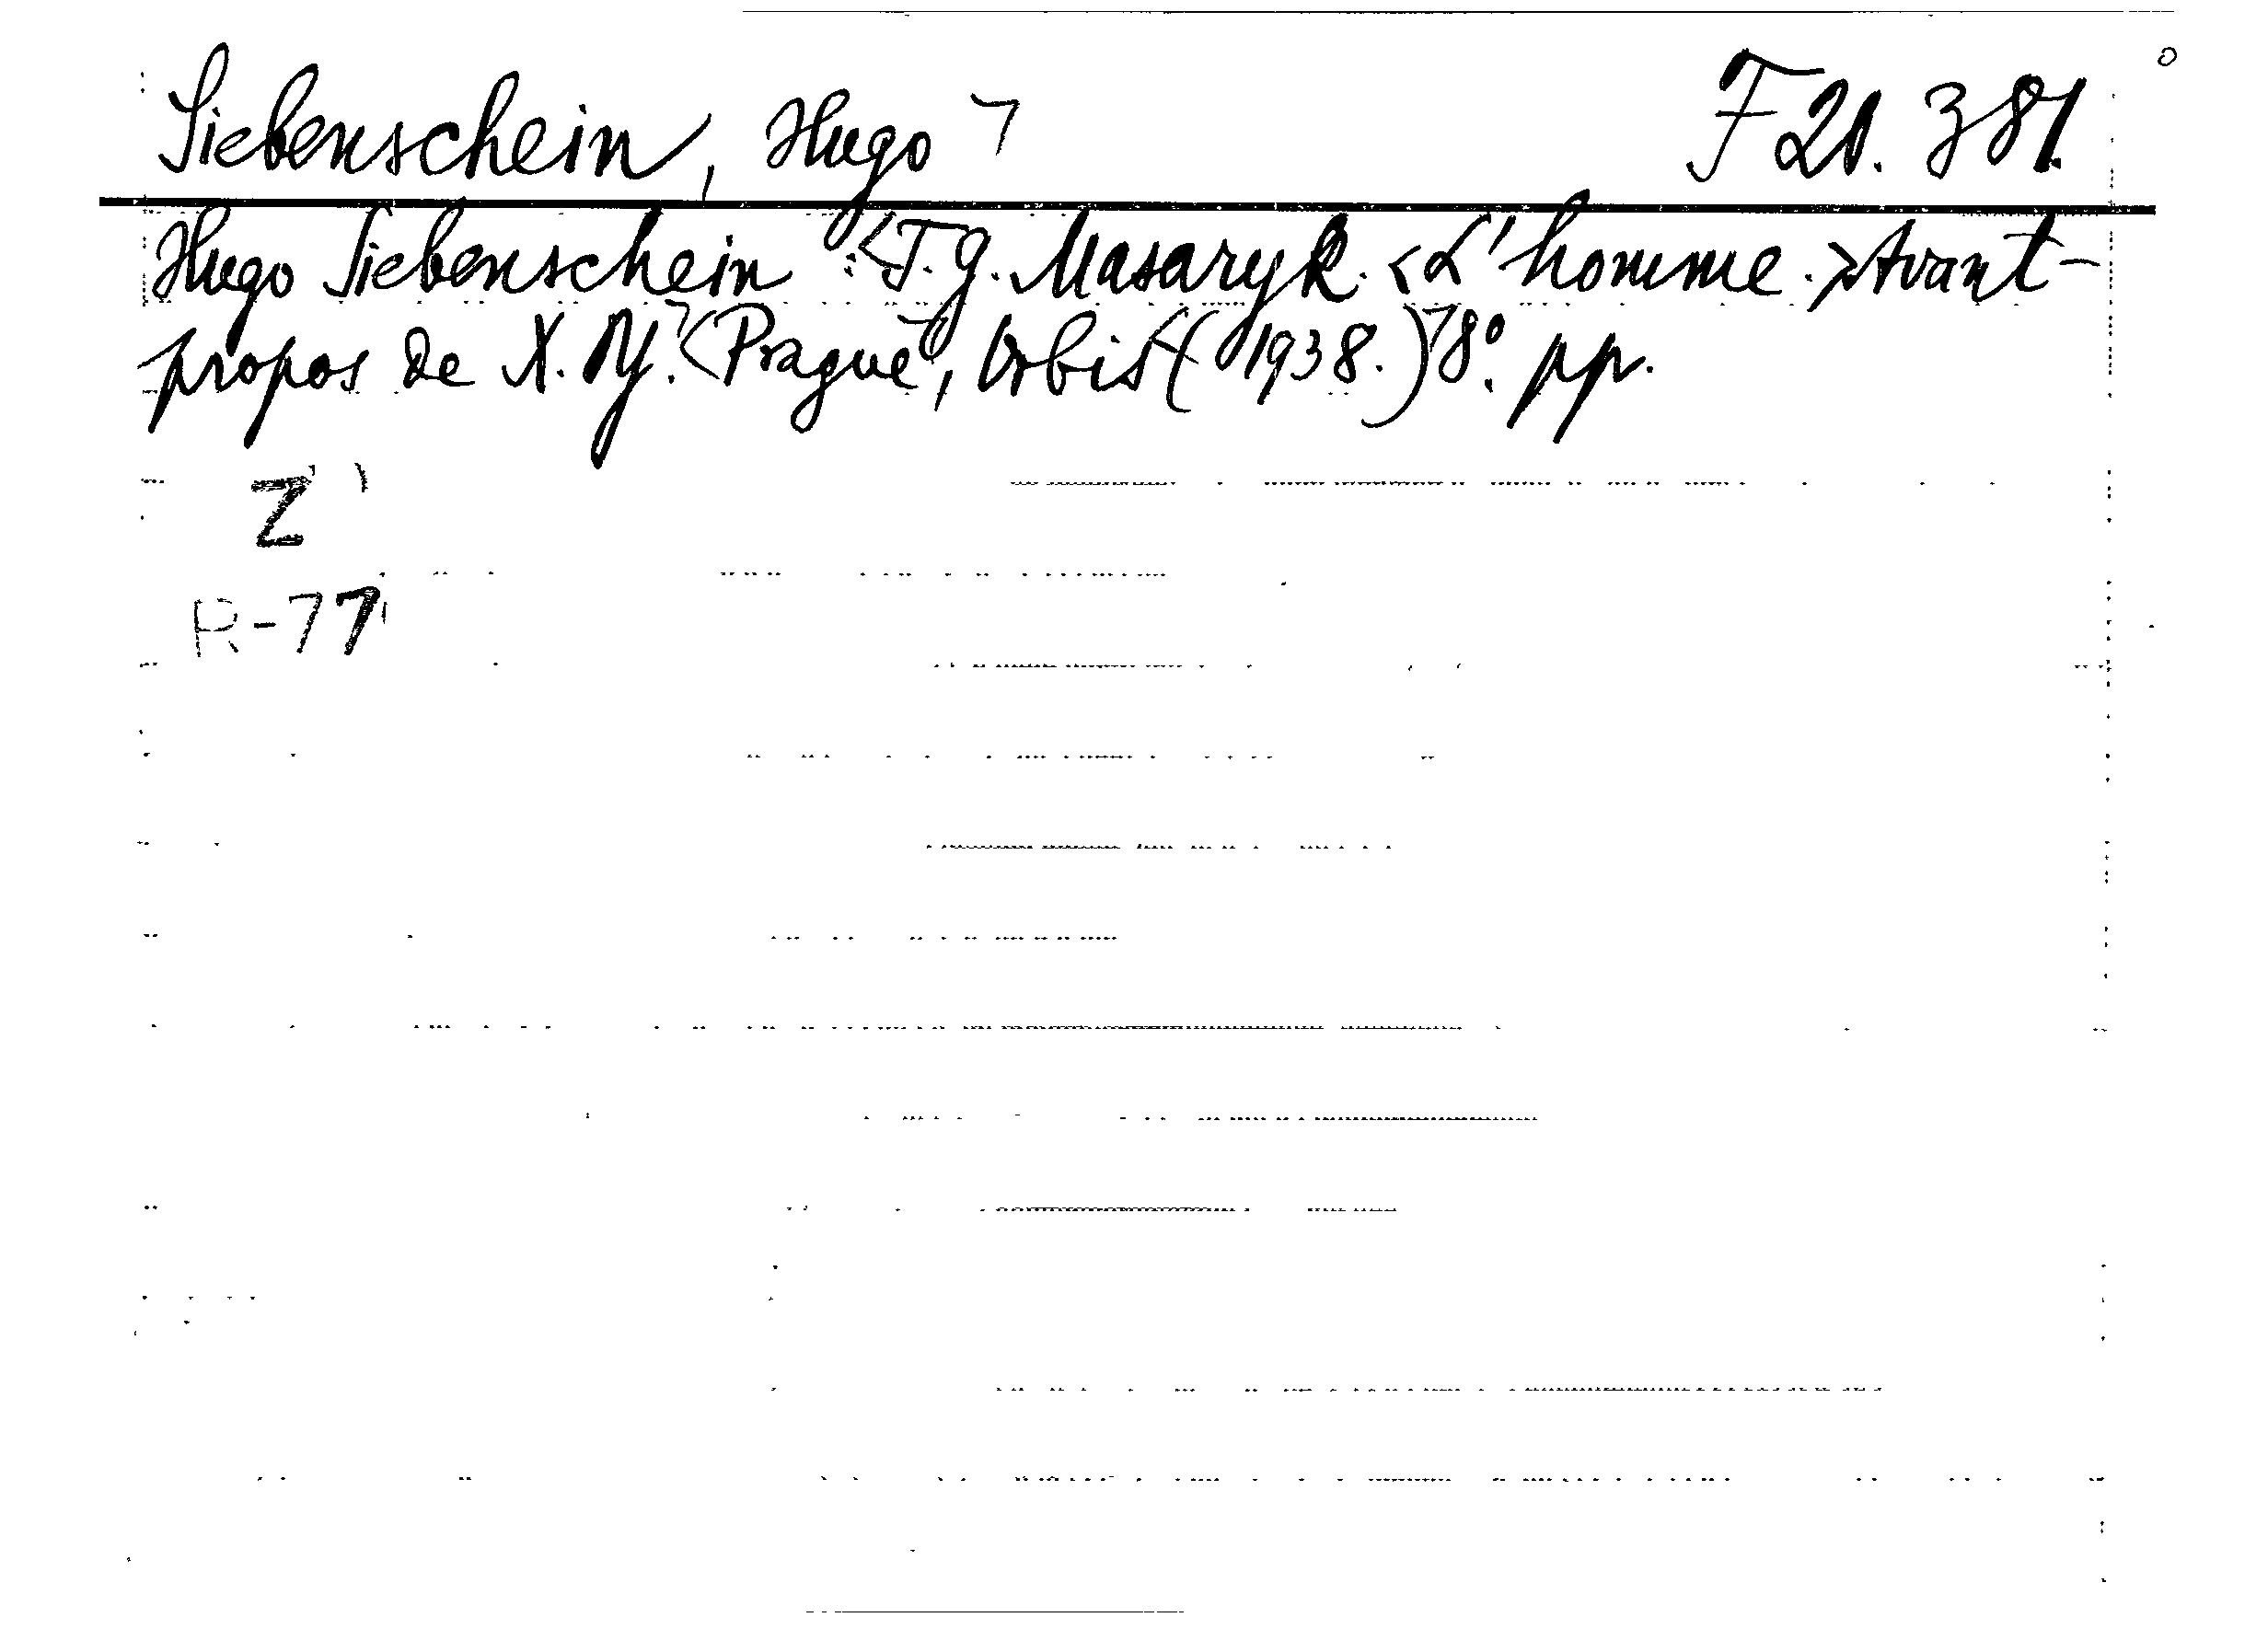 Siebenschein, Hugo ¬ F 20. 381.
Hugo Siebenschein : <T. G. Masaryk. <L'homme.> Avant-
propos de X. Y. <Prague, Orbis (1938.) 8°. pp.
Z
R-77